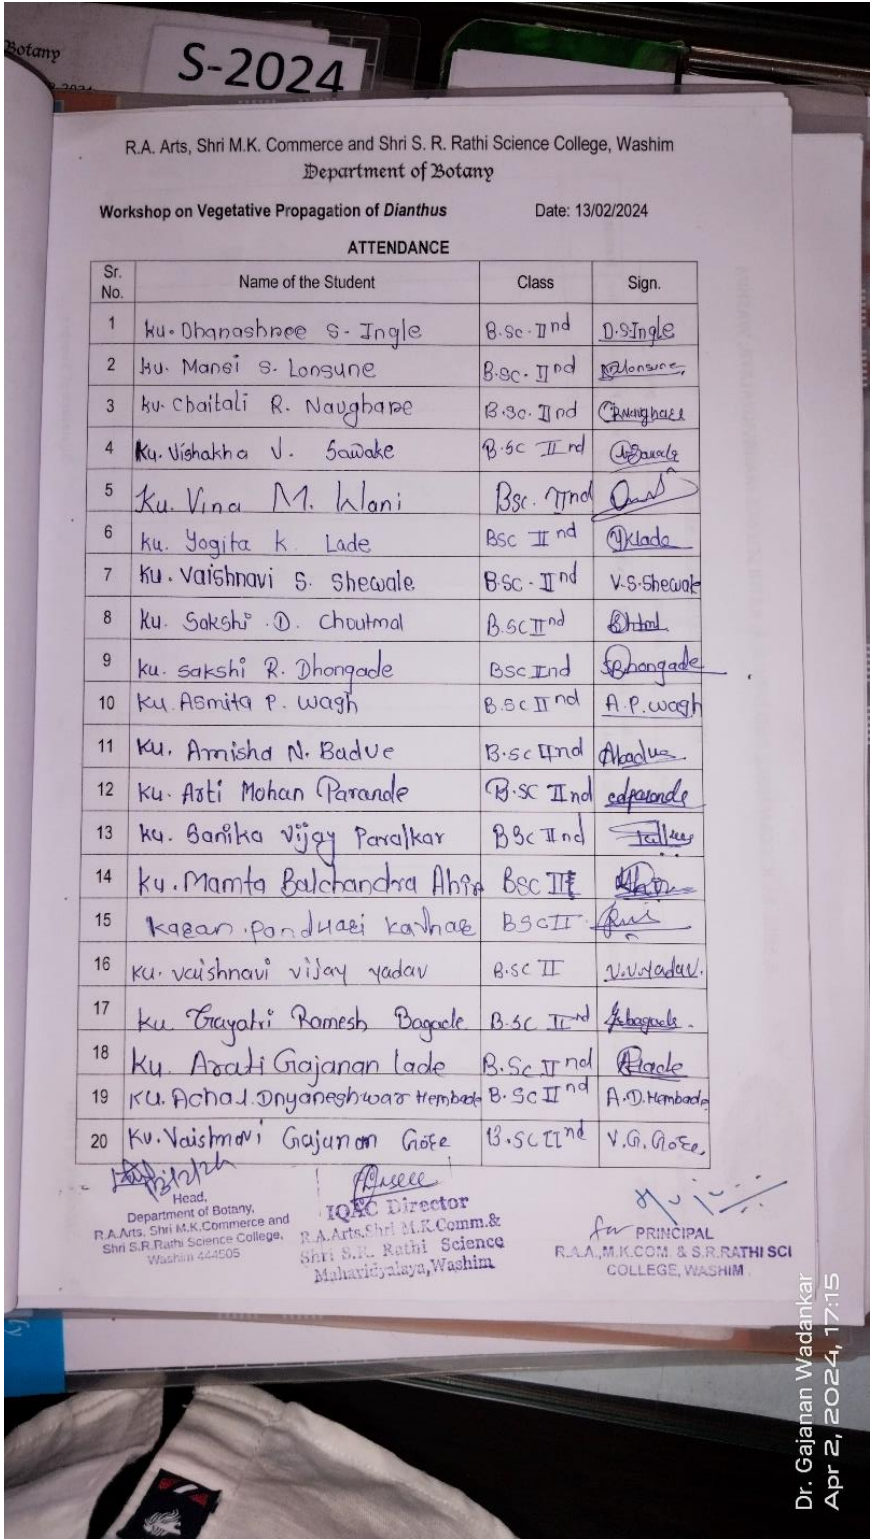 Botany
S-2024
R.A. Arts, Shri M.K. Commerce and Shri S. R. Rathi Science College, Washim
Department of Botany
Workshop on Vegetative Propagation of Dianthus Date: 13/02/2024
ATTENDANCE
Sr. No. Name of the Student Class Sign.
1 Ku. Dhanashree S. Ingle B.Sc. IInd D.S.Ingle
2 Ku. Mansi S. Lonsune B.Sc. IInd
3 Ku. Chaitali R. Navghare B.Sc. IInd
4 Ku. Vishakha V. Sawake B.SC IInd
5 Ku. Vina M. Wani Bsc. IInd
6 Ku. Yogita K. Lade BSC IInd Yklade
7 Ku. Vaishnavi S. Shewale B.SC. IInd V.S.Shewale
8 Ku. Sakshi D. Choutmal B.SC IInd
9 Ku. Sakshi R. Dhongade BSC IInd SRDhongade
10 Ku. Asmita P. Wagh B.SC IInd A.P.wagh
11 Ku. Amisha N. Badve B.sc IInd
12 Ku. Arti Mohan Parande B.SC IInd
13 Ku. Sanika Vijay Paralkar BSc IInd
14 Ku. Mamta Balchandra Ahir BSC II
15 BSC II
16 Ku. Vaishnavi Vijay Yadav B.SC II V.V.Yadav.
17 Ku Gayatri Ramesh Bagade B.SC IInd
18 Ku. Arati Gajanan lade B.Sc IInd
19 KU. Achal Dnyaneshwar Hembade B.Sc IInd A.D.Hembade
20 Ku. Vaishnavi Gajanan Gote B.SC IInd V.G.Gote.
Head,
Department of Botany,
R.A.Arts, Shri M.K.Commerce and
Shri S.R.Rathi Science College,
Washim 444505
IQAC Director
R.A.Arts.Shri M.K.Comm.&
Shri S.R. Rathi Science
Mahavidyalaya,Washim
for PRINCIPAL
R.A.A.,M.K.COM. & S.R.RATHI SCI
COLLEGE, WASHIM
Dr. Gajanan Wadankar
Apr 2, 2024, 17:15